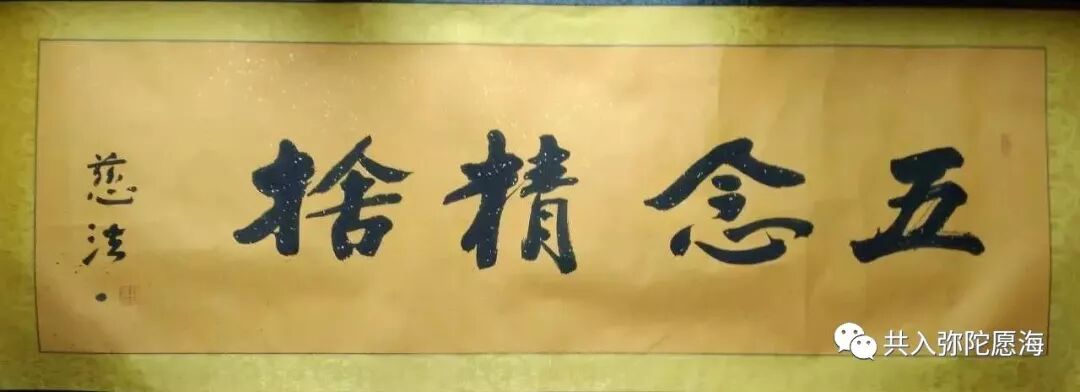 五念精捨
慈法
共入弥陀愿海